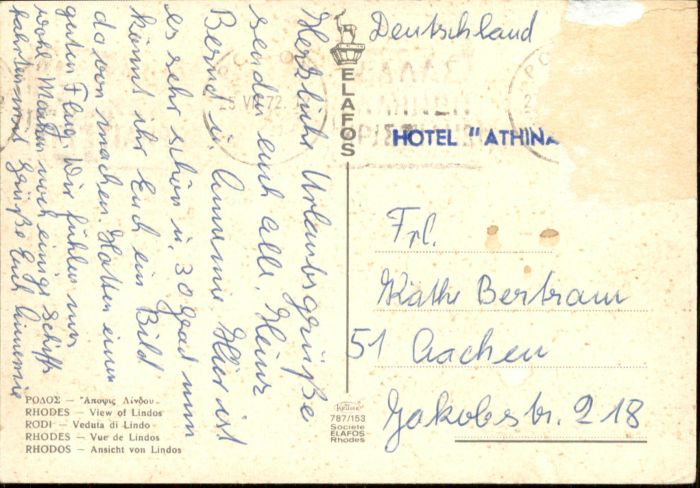 Herzliche Urlaubsgrüße
senden euch alle, Heinz
Bernd u. Annemie Hier ist
es sehr schön u. 30 grad nun
könnt ihr Euch ein Bild
davon machen. Hatten einen
guten Flug. Wir fühlen uns
wohl. Machen noch einige Schiff-
fahrten mit Grüße Euch Annemie
Deutschland
ELAFOS
HOTEL "ATHINA
VII 72
Frl.
Käthe Bertram
51 Aachen
Jakobstr. 218
ΡΟΔΟΣ — Ἄποψις Λίνδου
RHODES — View of Lindos
RODI — Veduta di Lindo
RHODES — Vue de Lindos
RHODOS — Ansicht von Lindos
787/153
Societe
ELAFOS
Rhodes